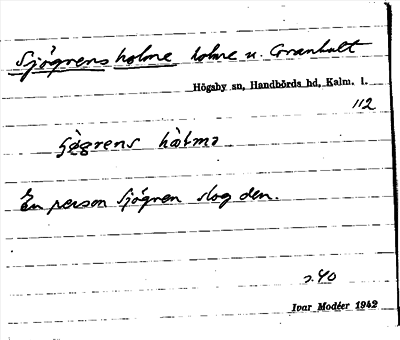 Sjögrens holme holme u. Granhult
Högsby sn, Handbörds hd, Kalm. l.
112
En person Sjögren slog den.
s. 40
Ivar Modéer 1942